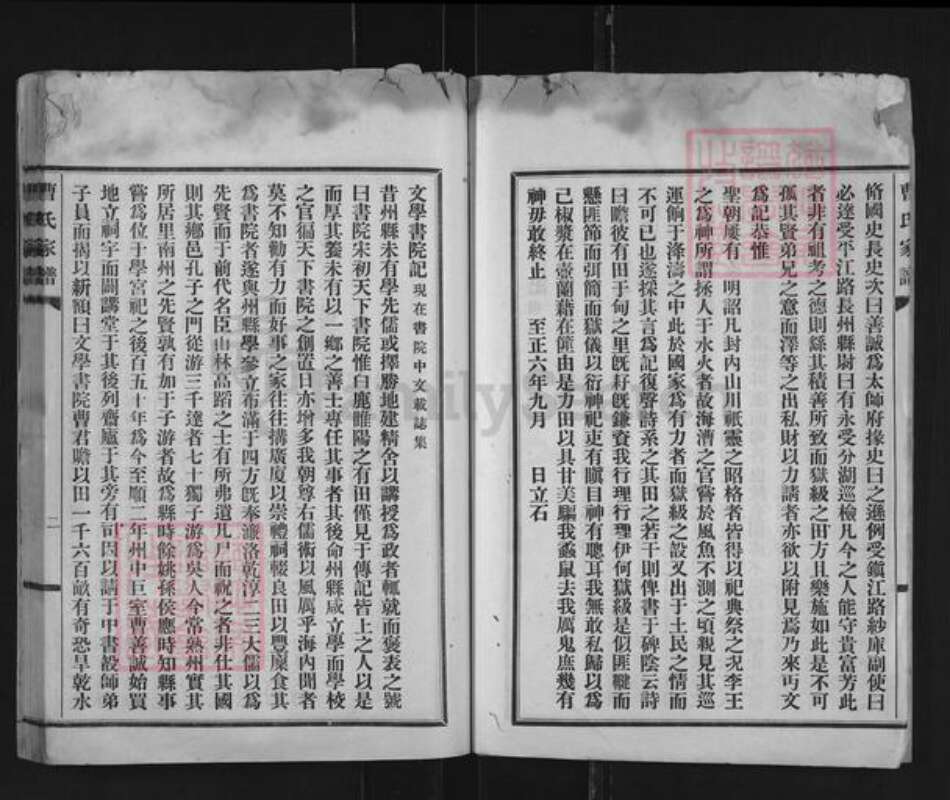 脩國史長史次曰善誠爲太師府掾史曰之遜例受鎭江路紗庫副使曰
必達受平江路長州縣尉曰有永受分湖巡檢凡今之人能守貴富芳此
者非有祖考之德則餘其積善所致而獄級之田方且樂施如此是不可
孤其賢弟兄之意而澤等之出私財以力請者亦欲以附見焉乃來丐文
爲記恭惟
聖朝屢有 明詔凡封內山川祇靈之昭格者皆得以祀典祭之況李王
之爲神所謂拯人于水火者故海漕之官嘗於風魚不測之頃親見其巡
運餉于洚濤之中此於國家爲有力者而獄級之設又出于士民之情而
不可已也遂採其言爲記復聲詩系之其田之若干則俾書于碑陰云詩
曰瞻彼有田于甸之里旣耔旣鎌資我行理行理伊何獄級是似匪轣而
懸匪節而弭簡而獄儀以衍神祀吏有瞋目神有聰耳我無敢私歸以爲
己椒漿在壺蘭藉在篚由是力田以具甘美驅我蟊鼠去我厲鬼庶幾有
神毋敢終止 至正六年九月 日立石
文學書院記現在書院中文載誌集
昔州縣未有學先儒或擇勝地建精舍以講授爲政者輒就而褒表之號
曰書院宋初天下書院惟白鹿睢陽之有田僅見于傳記皆上之人以是
而厚其養未有以一鄉之善士專任其事者其後命州縣咸立學而學校
之官徧天下書院之創置日亦增多我朝尊右儒術以風厲乎海內聞者
莫不知勸有力而好事之家往往搆廣廈以崇禮祠輟良田以豐廩食其
爲書院者遂與州縣學參立布滿于四方旣奉濂洛乾淳二三大儒以爲
先賢而于前代名臣山林高蹈之士有所弗遺凡尸而祝之者非仕其國
則其鄉邑孔子之門從游三千達者七十獨子游爲吳人今常熟州實其
所居里南州之先賢孰有加于子游者故爲縣時餘姚孫侯應時知縣事
嘗爲位于學宮祀之後百五十年爲今至順二年州中巨室曹善誠始買
地立祠宇而闢講堂于其後列齋廬于其旁有司因以請于中書設師弟
子員而揭以新額曰文學書院曹君瞻以田一千六百畝有奇恐旱乾水
曹氏家譜
二